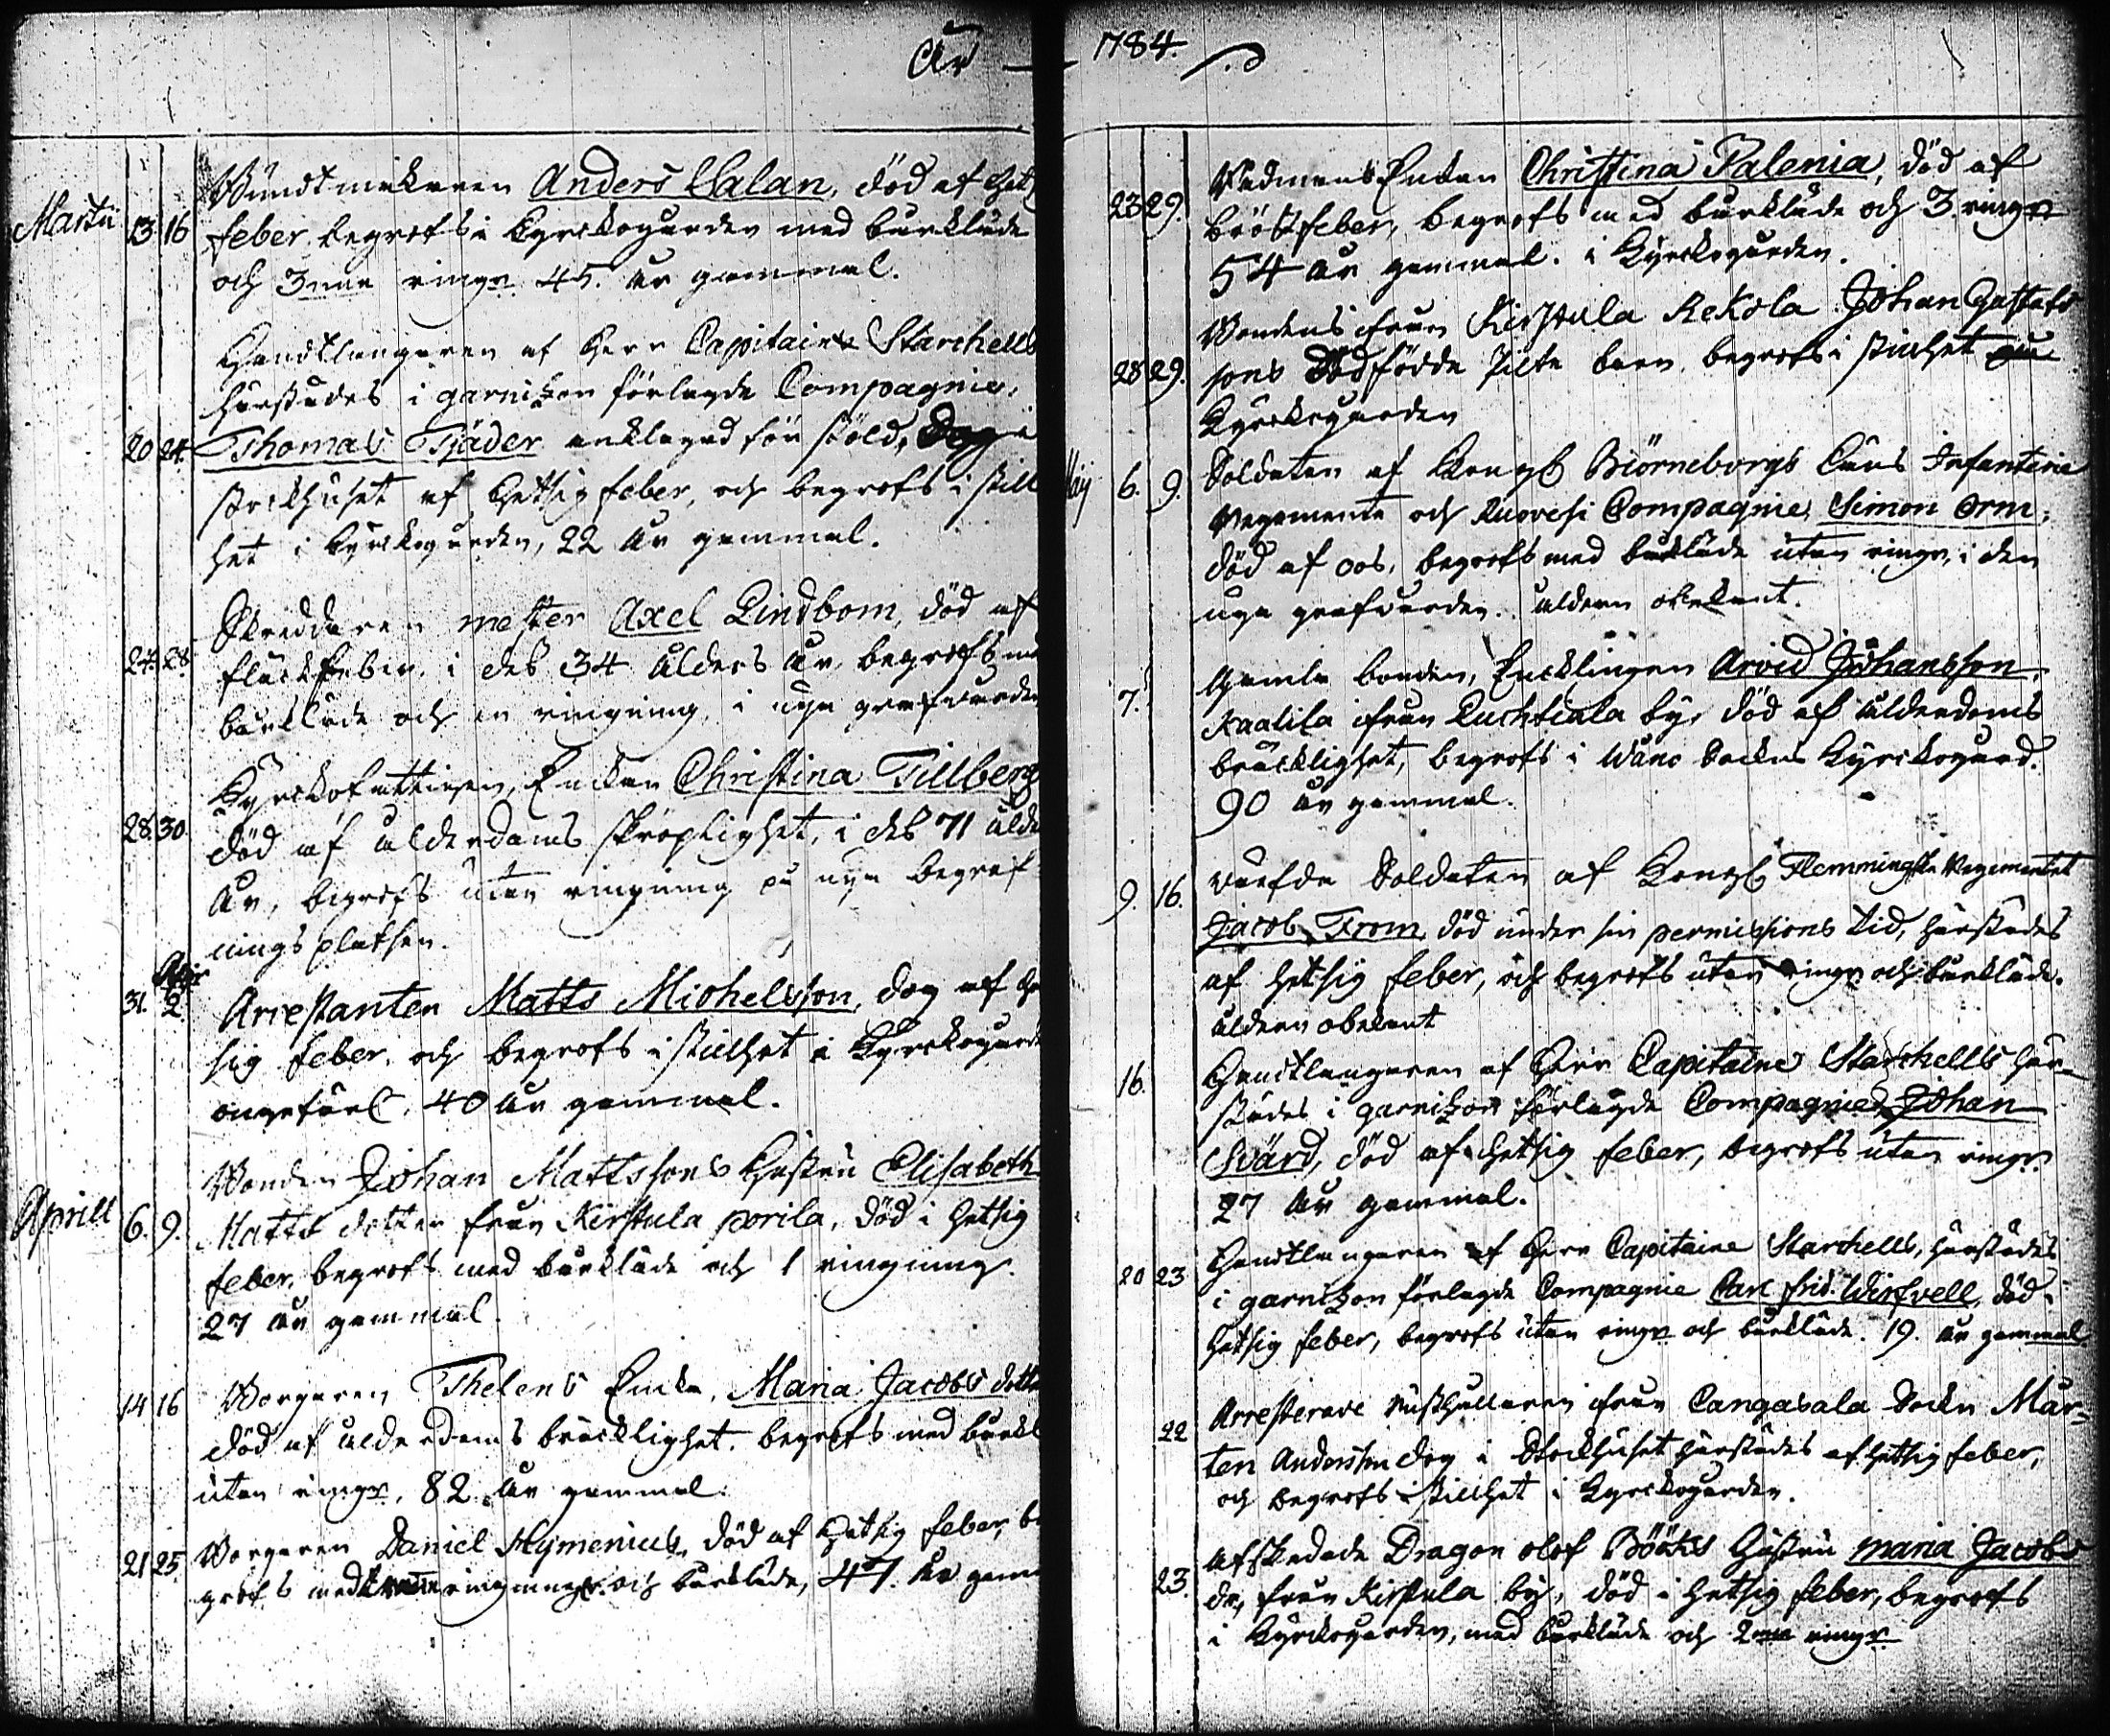 År
Martii 13 16 Wundtmakaren Anders Calan, död af het
feber, begrofs i Kyrckogården med bårkläde
och 3nne ringn. 45. år gammal.
Handtlangaren af Herr Capitaine Starchells
härstädes i garnizon förlagde Compagnie,
20 24. Thomas Tjäder anklagad för stöld, dog i
stockhuset af hetsig feber, och begrofs i still
het i Kyrckogården, 22 år gammal.
Skreddaren mester Axel Lindbom, död af
24. 28. fläckfeber, i des 34 ålders år, begrofs me
bårkläde och en ringning, i nya grafvården
Enckan Christina Tillberg
28. 30. död af ålderdoms skröplighet, i des 71 ålde
år, begrofs utan ringning på nya begraf
nings platsen.
31. Apr. 2. Arrestanten Matts Michelsson, dog af he
sig feber, och begrofs i stillhet i Kyrckogård
ongefärl. 40 år gammal.
Bonden Johan Mattssons Hustru Elisabeth
Aprill 6. 9. Matts dotter från Kirstula porila, död i hetsig
feber, begrofs med bårkläde och 1 ringning.
27 år gammal.
Borgaren Thelens Encka, Maria Jacobs dotte
14 16 död af ålderdoms bräcklighet. begrofs med bårkl
utan ringn. 82 år gammal.
21 25. Borgaren Daniel Hymenius, död af Hetsig feber, be
grofs med ringningar och bårkläde, 47. år gam
1784.
Enkan Christina Palenia, död af
23 29. bröstfeber, begrofs med bårkläde och 3 ringn
54 år gammal. i Kyrckogården.
Bondens ifrån Kirstula Rekola Johan Gustafs
28 29. sons dödfödde barn begrofs i stillhet
Kyrckogården
Maij 6. 9. Soldaten af Kongl Biörneborgs Läns Infanterie
Regemente och Ruovesi Compagnie Simon Orm,
död af begrofs med bårkläde utan ringn, i den
nya grafvården. åldern obekant.
7. Gamla bonden, Encklingen Arvid Johansson
Kaalila ifrån Luchtiala by, död af ålderdoms
bräcklighet, begrofs i Wånå Sockns Kyrckogård.
90 år gammal.
9. 16. Soldaten af Kongl Flemmingska Regementet
Jacob From, död under sin permissions tid, härstädes
af hetsig feber, och begrofs utan ringn och bårkläde.
åldern obekant
16. Handtlangaren af Herr Capitaine Starchells här-
städes i garnizon förlagde Compagnie Johan
Svärd, död af hetsig feber, begrofs utan ringn.
27 år gammal.
20 23 Handtlangaren af Herr Capitaine Starchells, härstädes
i garnizon förlagde Compagnie Carl Frid. Wirfvell, död i
hetsig feber, begrofs utan ringn och bårkläde. 19. år gammal.
22 Arresterade ifrån Cangasala Sockn Mår-
ten Andersson dog i Stockhuset härstädes af hetsig feber,
och begrofs i stillhet i Kyrckogården.
23. Afskedade Dragon Olof Hustru Maria Jacobs
dr, från Kirstula by, död i hetsig feber, begrofs
i Kyrckogården, med bårkläde och 2ne ringr